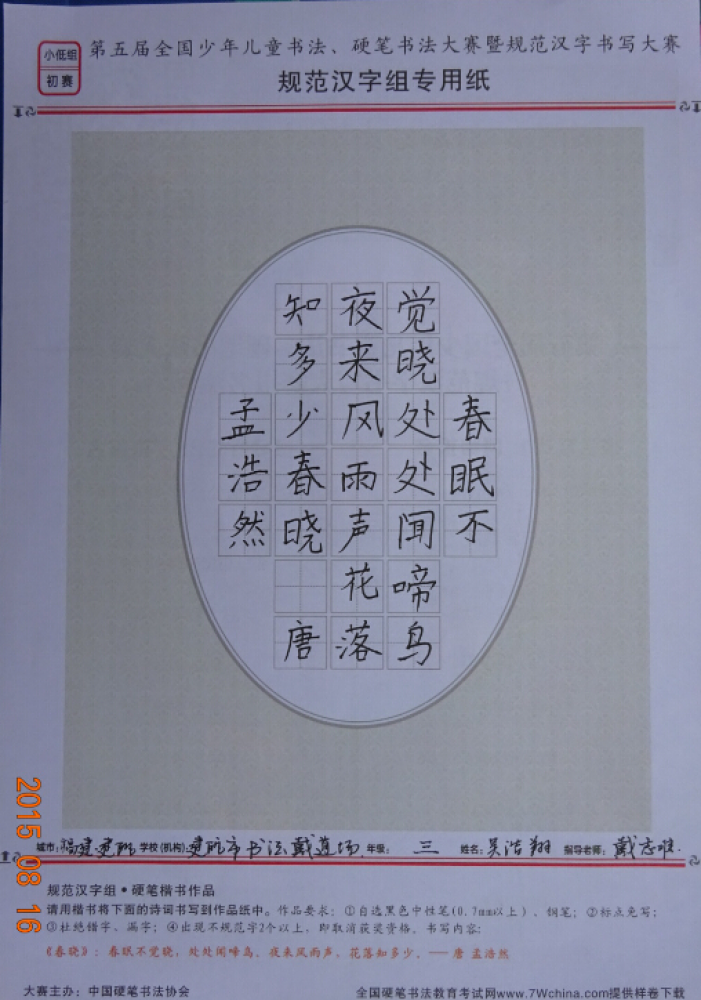 小低组
初赛
第五届全国少年儿童书法、硬笔书法大赛暨规范汉字书写大赛
规范汉字组专用纸
春眠不
觉晓处处闻啼鸟
夜来风雨声花落
知多少春晓 唐
孟浩然
城市: 福建建瓯 学校(机构): 建瓯市书法戴莲场 年级: 三 姓名: 吴浩翔 指导老师: 戴志
2015 08 16
规范汉字组•硬笔楷书作品
请用楷书将下面的诗词书写到作品纸中。作品要求:①自选黑色中性笔(0.7mm以上)、钢笔;②标点免写;
③杜绝错字、漏字;④出现不规范字2个以上,即取消获奖资格。书写内容:
《春晓》:春眠不觉晓,处处闻啼鸟。夜来风雨声,花落知多少。——唐 孟浩然
大赛主办:中国硬笔书法协会
全国硬笔书法教育考试网www.7Wchina.com提供样卷下载